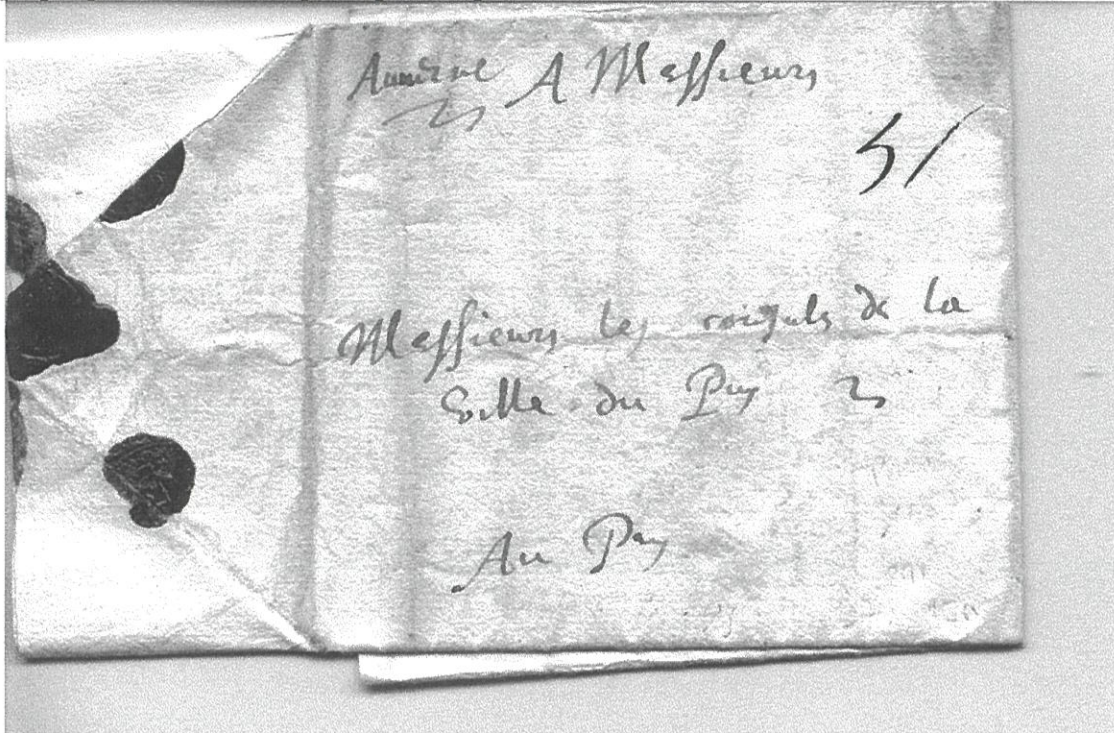 A Messieurs
5/
Messieurs les consuls de la
Ville du Puy
Au Puy